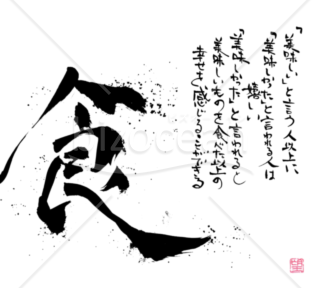 「美味しい」と言う人以上に、
「美味しかった」と言われる人は
嬉しい
「美味しかった」と言われると
美味しいものを食べた以上の
幸せを感じることができる
食